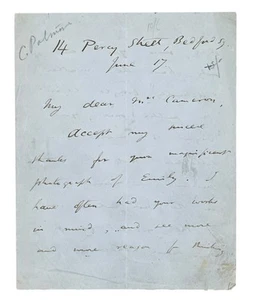 C. Patmore
14 Percy Street, Bedford Sq
June 17
My dear Mrs Cameron,
Accept my sincere
thanks for your magnificent
photograph of Emily. I
have often had your works
in mind, and see more
and more reason for